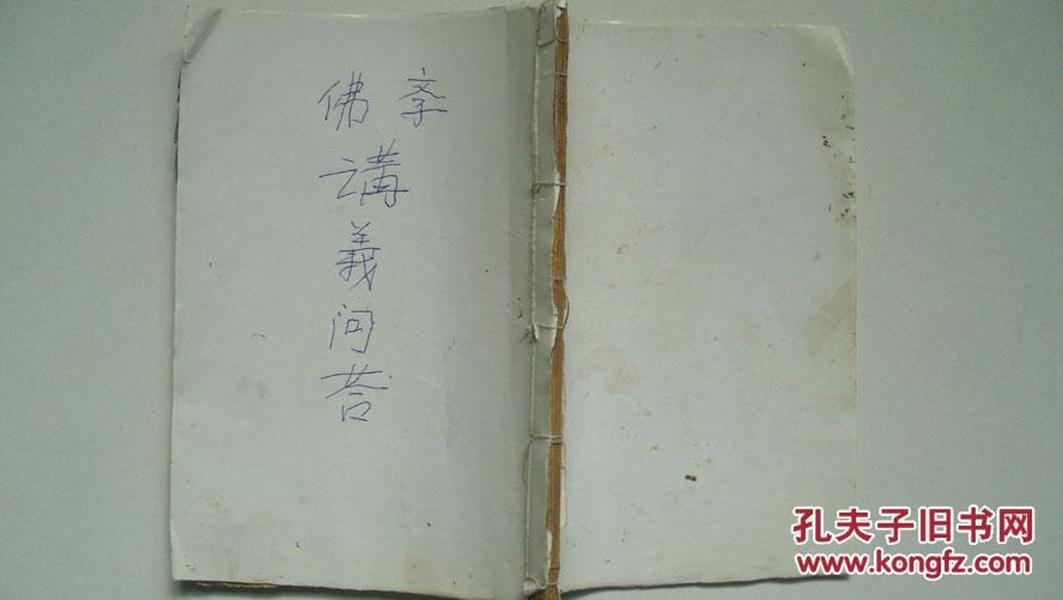 佛斈
講義问荅
孔夫子旧书网
www.kongfz.com